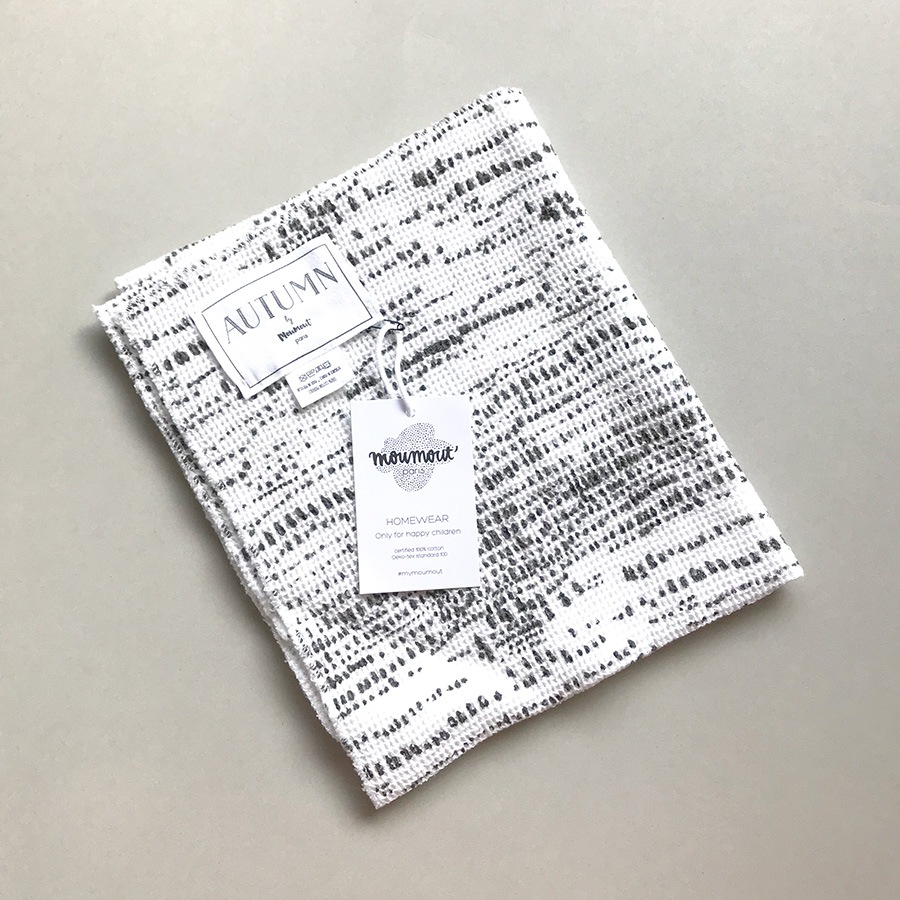 AUTUMN
by
Moumout'
paris
moumout'
paris
HOMEWEAR
Only for happy children
certified 100% cotton
Oeko-tex standard 100
#mymoumout